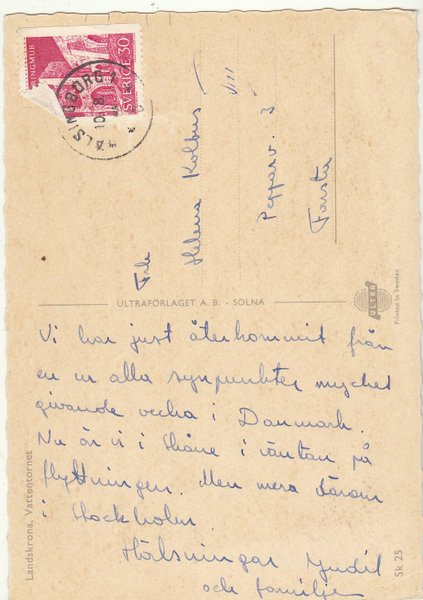 RINGMUR
SVERIGE 30
HÄLSINGBORG 1
10.8
Frk
Helena Kolbus
VIII
Pepparv. 5
Farsta
ULTRAFÖRLAGET A. B. - SOLNA
ULTRA
Printed in Sweden
Vi har just återkommit från
en ur alla synpunkter mycket
givande vecka i Danmark.
Nu är vi i Skåne i väntan på
flyttningen. Men mera därom
i Stockholm.
Hälsningar Judit
och familje
Landskrona, Vattentornet
Sk 25